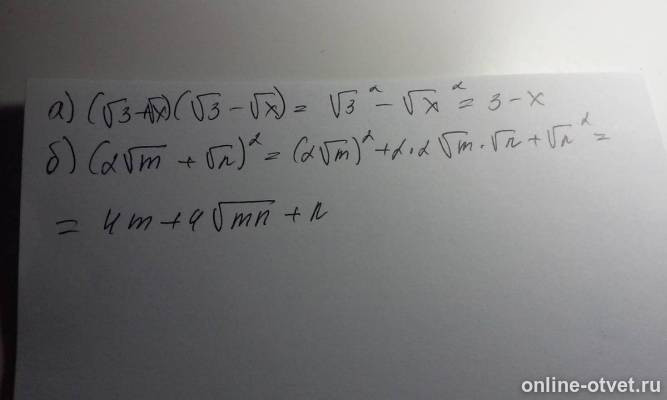 а) (√3+√x)(√3-√x) = √3² - √x² = 3-x
б) (2√m + √n)² = (2√m)² + 2·2√m·√n + √n² =
= 4m + 4√mn + n
online-otvet.ru